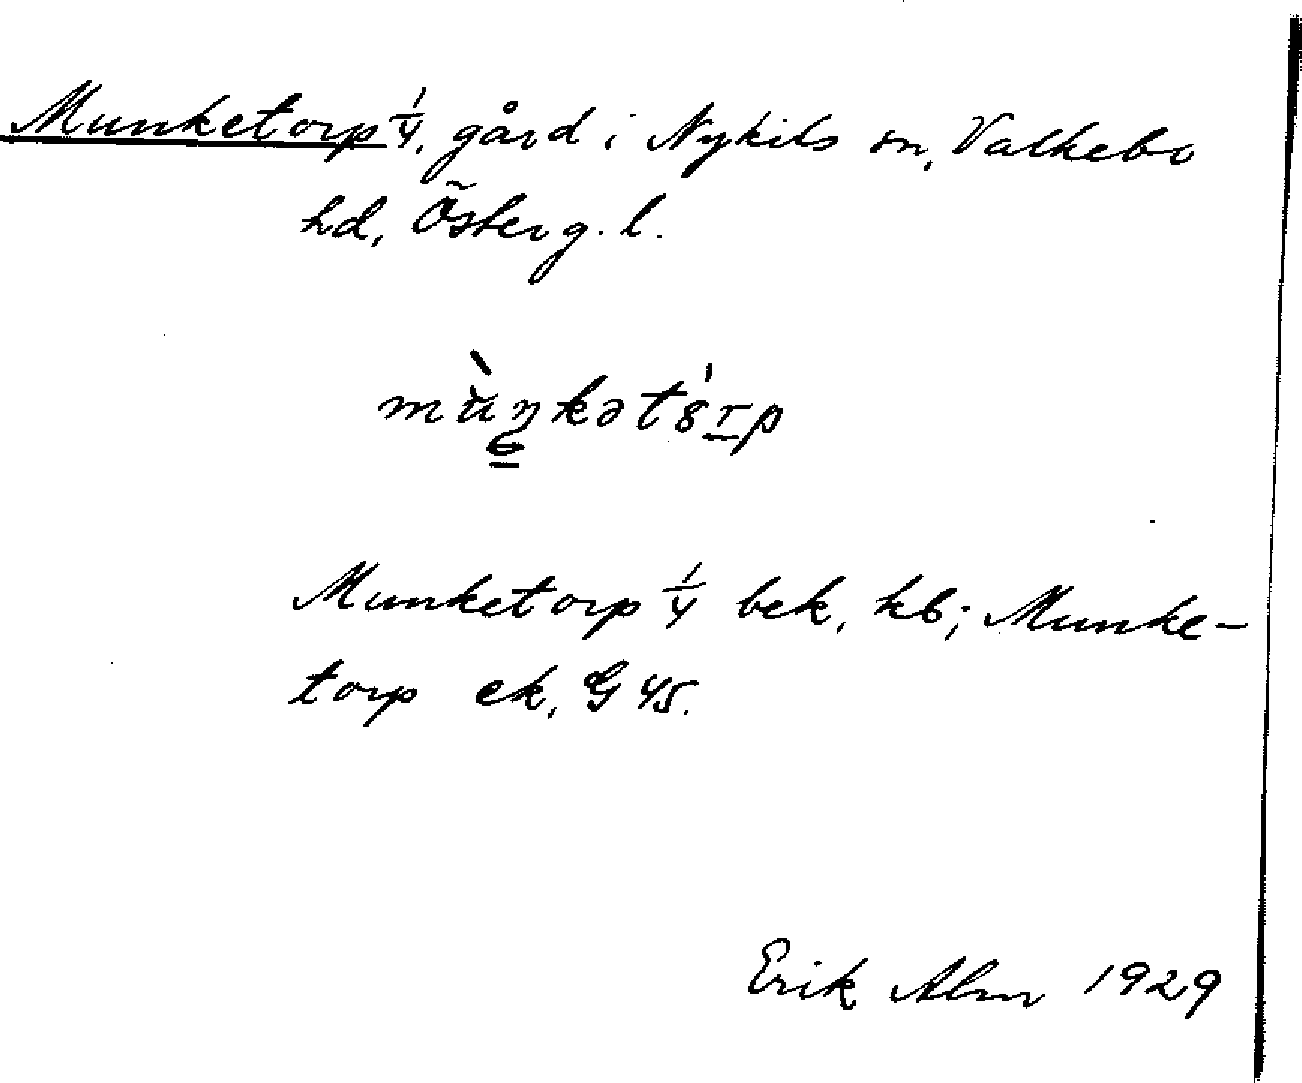 Munketorp 1/4, gård i Nykils sn, Valkebo
hd, Österg. l.
mùŋkət8́rp
Munketorp 1/4 bek, kb; Munke-
torp ek, G 45.
Erik Alm 1929